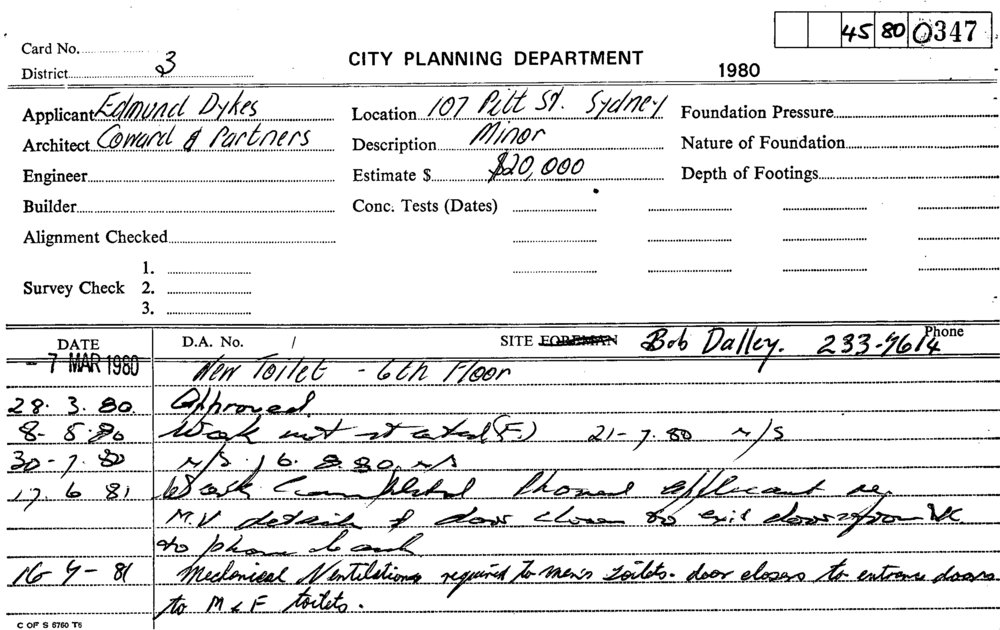 45 80 0347
Card No.
CITY PLANNING DEPARTMENT
District 3
1980
Applicant Edmund Dykes
Location 107 Pitt St. Sydney
Foundation Pressure
Architect Coward & Partners
Description Minor
Nature of Foundation
Engineer
Estimate $ $20,000
Depth of Footings
Builder
Conc. Tests (Dates)
Alignment Checked
1.
Survey Check 2.
3.
DATE D.A. No. / SITE FOREMAN Bob Dalley. Phone 233-7614
- 7 MAR 1980 New Toilet - 6th Floor
28. 3. 80. Approved.
8- 5.80 Work not started (F.) 21-7.80 n/s
30-7.80 n/s. 16. 8.80. n/s
17. 6 81 Work Completed Phoned applicant re
M.V details & door closer to exit doors from WC
to phone back
16 7- 81 Mechanical Ventilation required to men's toilets. door closers to entrance doors
to M & F toilets.
C OF S 6760 T6